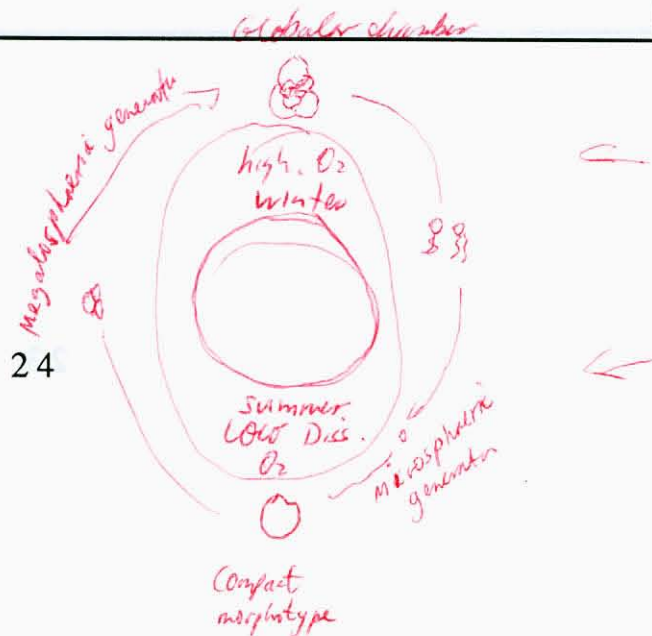 Globular chamber
Megalospheric generator
high. O2
winter
24
summer
LOW Diss.
O2
Microspheric
generator
Compact
morphotype